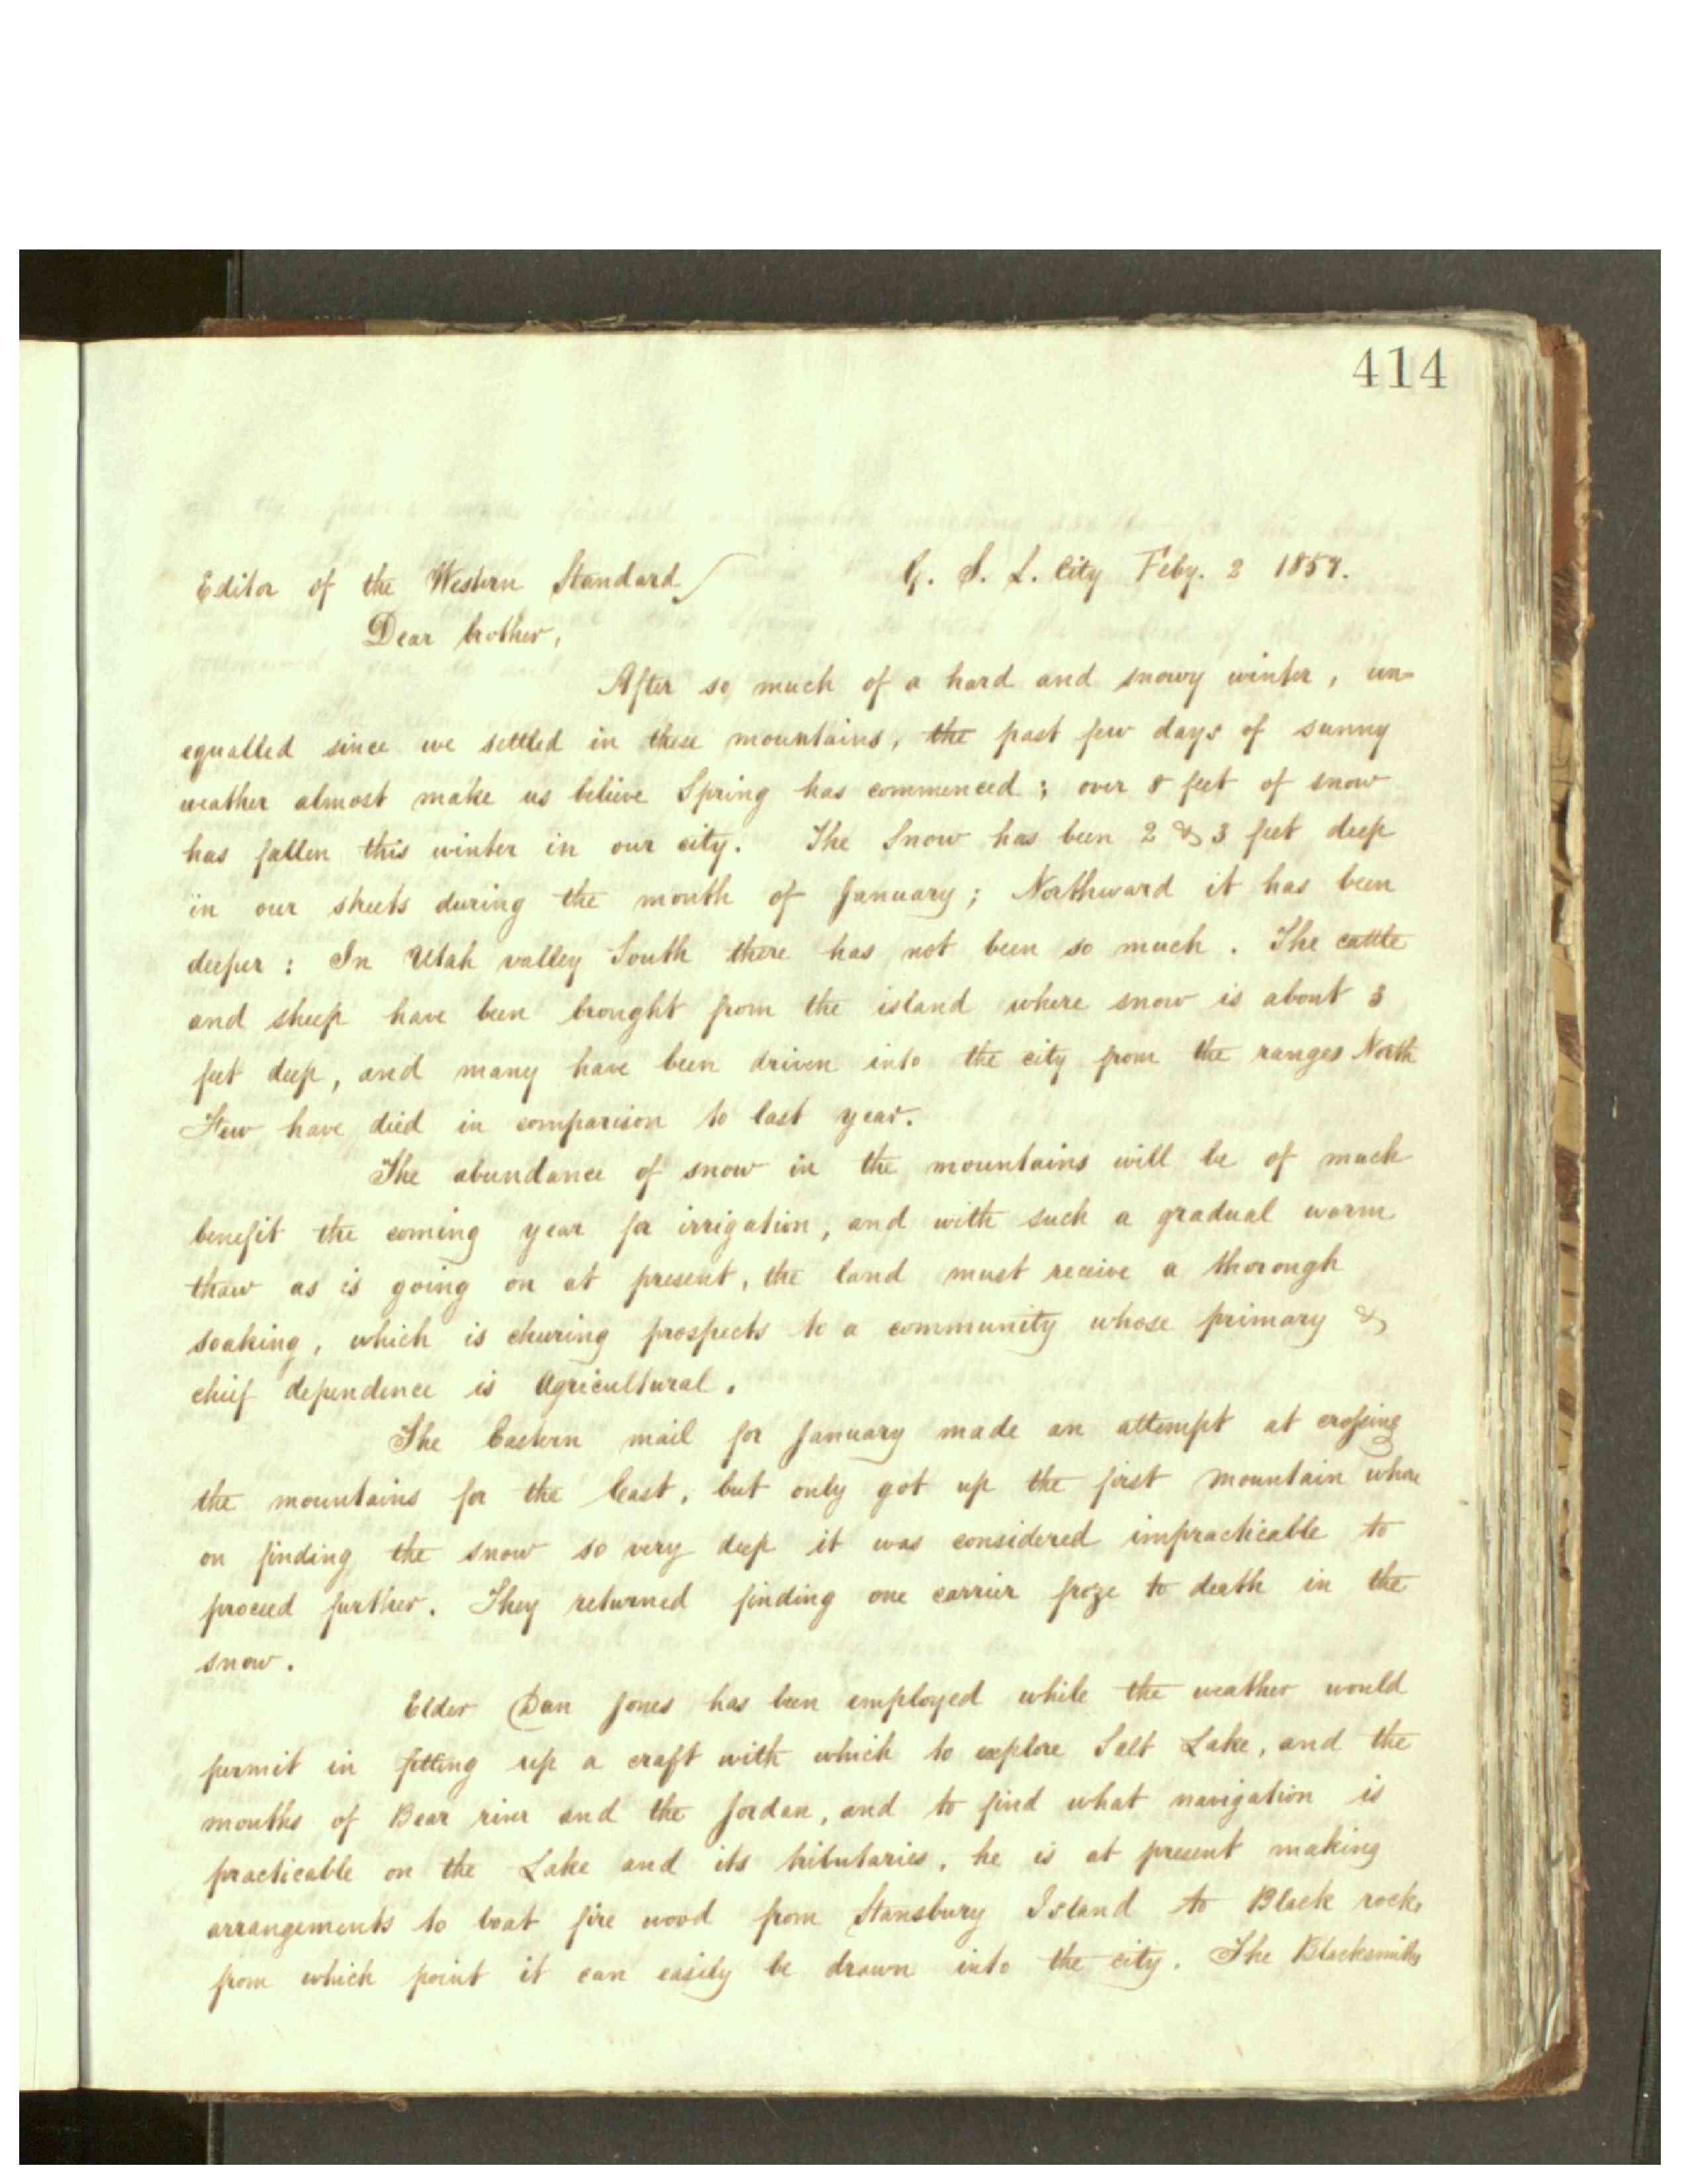 414
Editor of the Western Standard G. S. L. City Feby. 2 1857.
Dear brother,
After so much of a hard and snowy winter, un-
equalled since we settled in these mountains, the past few days of sunny
weather almost make us believe Spring has commenced; over 8 feet of snow
has fallen this winter in our city. The Snow has been 2 & 3 feet deep
in our streets during the month of January; Northward it has been
deeper: In Utah valley South there has not been so much. The cattle
and sheep have been brought from the island where snow is about 3
feet deep, and many have been driven into the city from the ranges North
Few have died in comparison to last year.
The abundance of snow in the mountains will be of much
benefit the coming year for irrigation, and with such a gradual warm
thaw as is going on at present, the land must receive a thorough
soaking, which is cheering prospects to a community whose primary &
chief dependence is Agricultural.
The Eastern mail for January made an attempt at crossing
the mountains for the East, but only got up the first mountain where
on finding the snow so very deep it was considered impracticable to
proceed further. They returned finding one carrier froze to death in the
snow.
Elder Dan Jones has been employed while the weather would
permit in fitting up a craft with which to explore Salt Lake, and the
mouths of Bear river and the Jordan, and to find what navigation is
practicable on the Lake and its tributaries, he is at present making
arrangements to boat fire wood from Stansbury Island to Black rock,
from which point it can easily be drawn into the city. The Blacksmiths